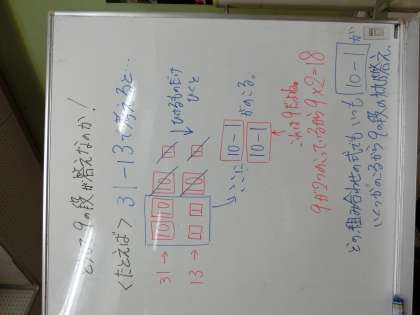 どうして9の段が答えなのか！
＜たとえば＞ 31-13で考えると…
31→ 10 10 10 1
13→ 10 1 1 1
ひけるものだけ
ひくと
ここに 10-1
10-1 がのこる。
これは9だよね。
9が2つのこっているから9×2=18
どの組み合わせの式でも いつも 10-1 が
いくつかのこるから9の段の答え。